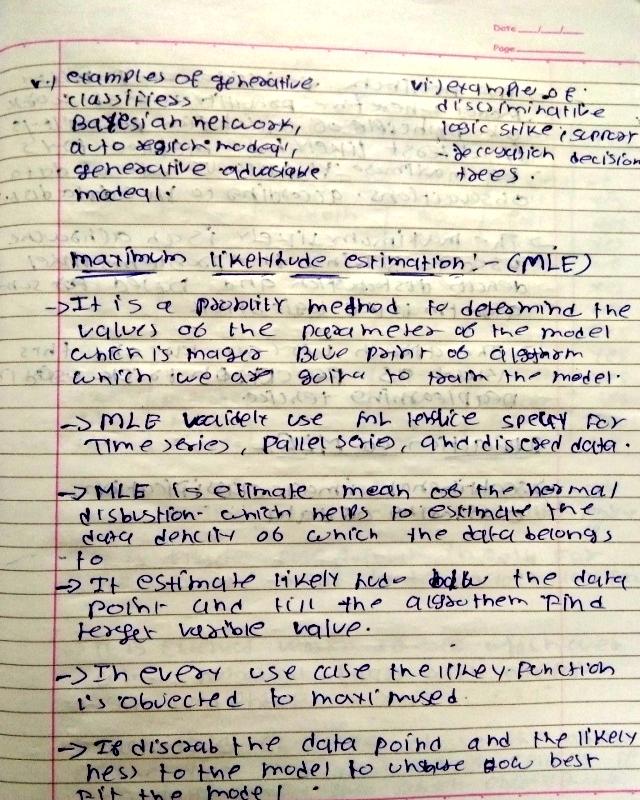 Date
Page
v.) examples of generative.
classifiess
Bayesian network,
auto regrich modeal,
generative advasiable
modeal.
vi) example of
discriminative
logic stike, support
decision
trees.
maximum likelyhude estimation:- (MLE)
->It is a problity method to determind the
values of the perameter of the model
which is mager Blue print of algothm
which we are goina to train the model.
-> MLE use ML speciy for
Time series, pallel series, and discsed data.
-> MLE is etimate mean of the normal
disbustion which helps to estimate the
data dencity of which the data belongs
- to
-> It estimate likely hude the data
point and till the algrothem find
terget varible value.
-> In every use case the likey function
is obuected to maximused.
-> It discrab the data poind and the likely
ness to the model to unsure how best
fit the model.